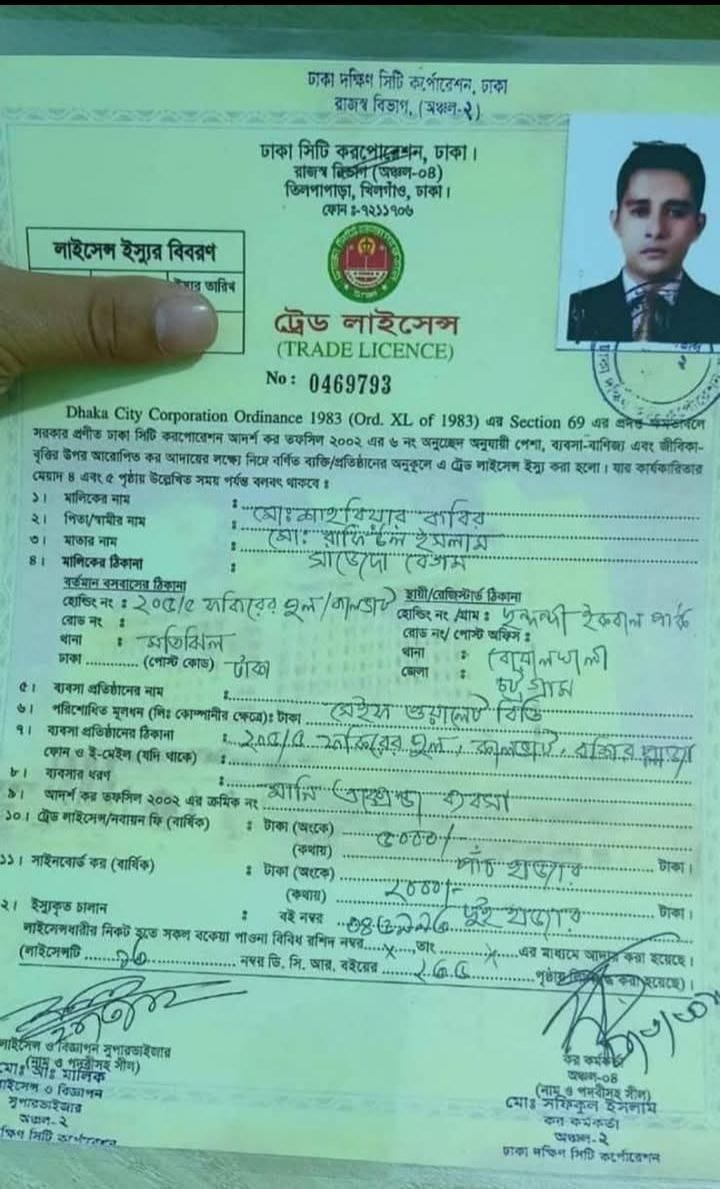 ঢাকা দক্ষিণ সিটি কর্পোরেশন, ঢাকা
রাজস্ব বিভাগ, (অঞ্চল-২)
ঢাকা সিটি করপোরেশন, ঢাকা।
রাজস্ব বিভাগ (অঞ্চল-০৪)
তিলপাপাড়া, খিলগাঁও, ঢাকা।
ফোন ঃ-৭২১১৭০৬
লাইসেন্স ইস্যুর বিবরণ
তারিখ
ট্রেড লাইসেন্স
(TRADE LICENCE)
No: 0469793
Dhaka City Corporation Ordinance 1983 (Ord. XL of 1983) এর Section 69 এর প্রদত্ত ক্ষমতাবলে
সরকার প্রণীত ঢাকা সিটি করপোরেশন আদর্শ কর তফসিল ২০০২ এর ৬ নং অনুচ্ছেদ অনুযায়ী পেশা, ব্যবসা-বাণিজ্য এবং জীবিকা-
বৃত্তির উপর আরোপিত কর আদায়ের লক্ষ্যে নিম্নে বর্ণিত ব্যক্তি/প্রতিষ্ঠানের অনুকূলে এ ট্রেড লাইসেন্স ইস্যু করা হলো। যার কার্যকারিতার
মেয়াদ ৪ এবং ৫ পৃষ্ঠায় উল্লেখিত সময় পর্যন্ত বলবৎ থাকবে ঃ
১। মালিকের নাম ঃ মোঃ শাহরিয়ার কবির
২। পিতা/স্বামীর নাম ঃ মো: রফিউল ইসলাম
৩। মাতার নাম ঃ বেগম
৪। মালিকের ঠিকানা ঃ
বর্তমান বসবাসের ঠিকানা স্থায়ী/রেজিস্টার্ড ঠিকানা
হোল্ডিং নং ঃ ২০৫/৫ ফকিরের পুল/কালভার্ট হোল্ডিং নং /গ্রাম ঃ ইকবাল পার্ক
রোড নং ঃ রোড নং/ পোস্ট অফিস ঃ
থানা ঃ মতিঝিল থানা ঃ বোয়ালখালী
ঢাকা ............ (পোস্ট কোড) ঢাকা জেলা ঃ চট্টগ্রাম
৫। ব্যবসা প্রতিষ্ঠানের নাম ঃ
৬। পরিশোধিত মূলধন (লিঃ কোম্পানীর ক্ষেত্রে)ঃ টাকা সেইফ ওয়ালেট বিডি
৭। ব্যবসা প্রতিষ্ঠানের ঠিকানা ঃ ২০৫/৫ ফকিরের পুল, কালভার্ট,
ফোন ও ই-মেইল (যদি থাকে) ঃ
৮। ব্যবসার ধরণ ঃ মানি ব্যবসা
৯। আদর্শ কর তফসিল ২০০২ এর ক্রমিক নং
১০। ট্রেড লাইসেন্স/নবায়ন ফি (বার্ষিক) ঃ টাকা (অংকে) ৫০০০/
(কথায়) পাঁচ হাজার টাকা।
১১। সাইনবোর্ড কর (বার্ষিক) ঃ টাকা (অংকে) ২০০০/-
(কথায়) দুই হাজার টাকা।
২। ইস্যুকৃত চালান ঃ বই নম্বর
লাইসেন্সধারীর নিকট হতে সকল বকেয়া পাওনা বিবিধ রশিদ নম্বর....x....,তাং ......x......এর মাধ্যমে আদায় করা হয়েছে।
(লাইসেন্সটি নম্বর ডি. সি. আর. বইয়ের পৃষ্ঠায় করা হয়েছে)।
লাইসেন্স ও বিজ্ঞাপন সুপারভাইজার
(নাম ও পদবীসহ সীল)
মোঃ আঃ মালিক
লাইসেন্স ও বিজ্ঞাপন
সুপারভাইজার
অঞ্চল-২
দক্ষিণ সিটি কর্পোরেশন
কর কর্মকর্তা
অঞ্চল-০৪
(নাম ও পদবীসহ সীল)
মোঃ সফিকুল ইসলাম
কর কর্মকর্তা
অঞ্চল-২
ঢাকা দক্ষিণ সিটি কর্পোরেশন